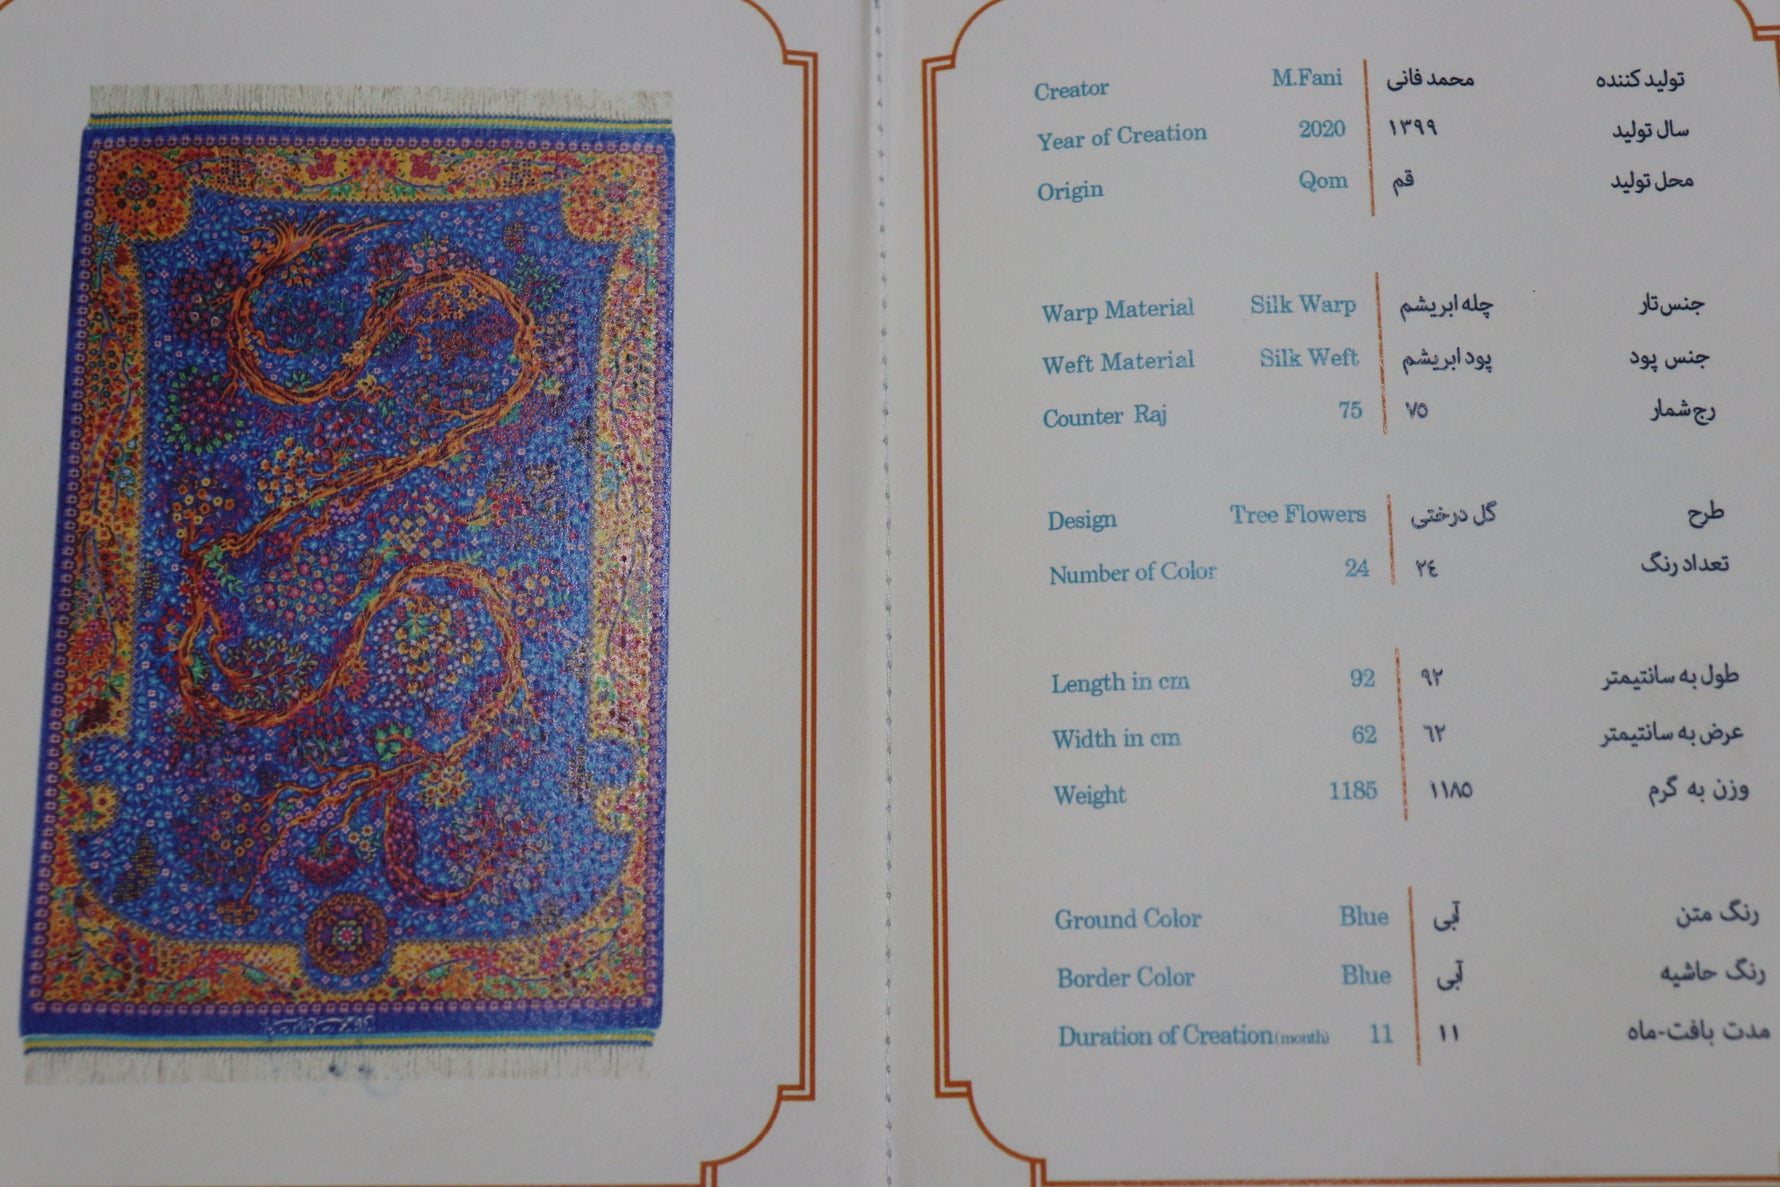 Creator M.Fani محمد فانی تولید کننده
Year of Creation 2020 ۱۳۹۹ سال تولید
Origin Qom قم محل تولید
Warp Material Silk Warp چله ابریشم جنس تار
Weft Material Silk Weft پود ابریشم جنس پود
Counter Raj 75 ۷۵ رج شمار
Design Tree Flowers گل درختی طرح
Number of Color 24 ٢٤ تعداد رنگ
Length in cm 92 ۹۲ طول به سانتیمتر
Width in cm 62 ٦٢ عرض به سانتیمتر
Weight 1185 ۱۱۸۵ وزن به گرم
Ground Color Blue آبی رنگ متن
Border Color Blue آبی رنگ حاشیه
Duration of Creation(month) 11 ۱۱ مدت بافت-ماه